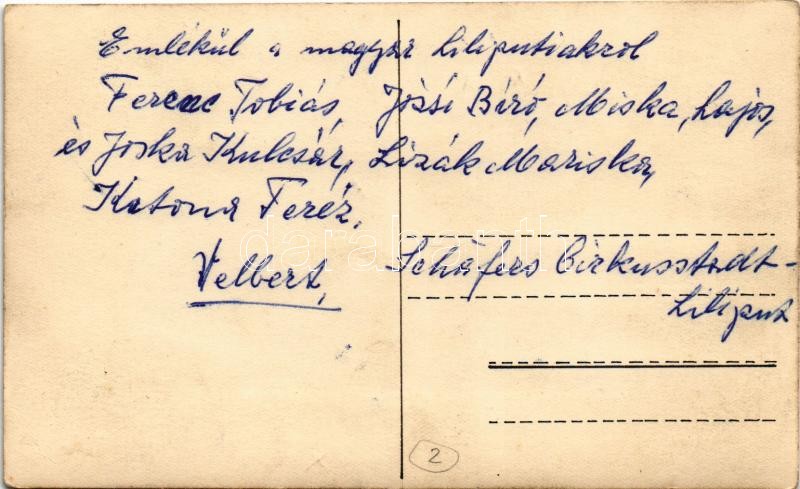 Emlékül a magyar Liliputiakrol
Ferenc Tobiás, Józsi Bíró, Miska, Lajos,
és Joska Kulcsár, Lizák Mariska,
Katona Feréz.
Velbert, Schäfers Cirkusstadt-
Liliput
darabanth
2